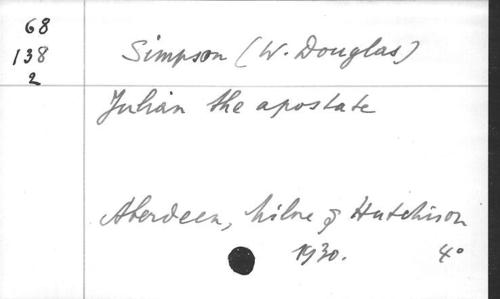 68
138
2
Simpson (W. Douglas)
Julian the apostate
Aberdeen, Milne & Hutchison
1930. 4°